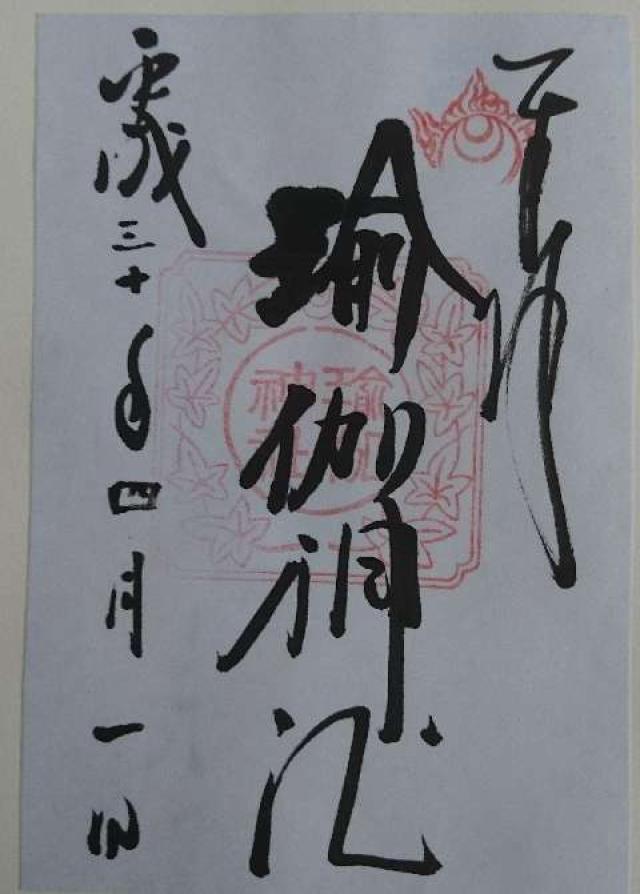 奉拝
瑜伽神社
平成三十年四月一日
瑜伽
神社